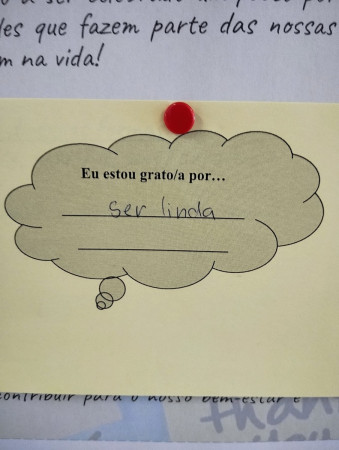 les que fazem parte das nossas
m na vida!
Eu estou grato/a por...
ser linda
contribuir para o nosso bem-estar e